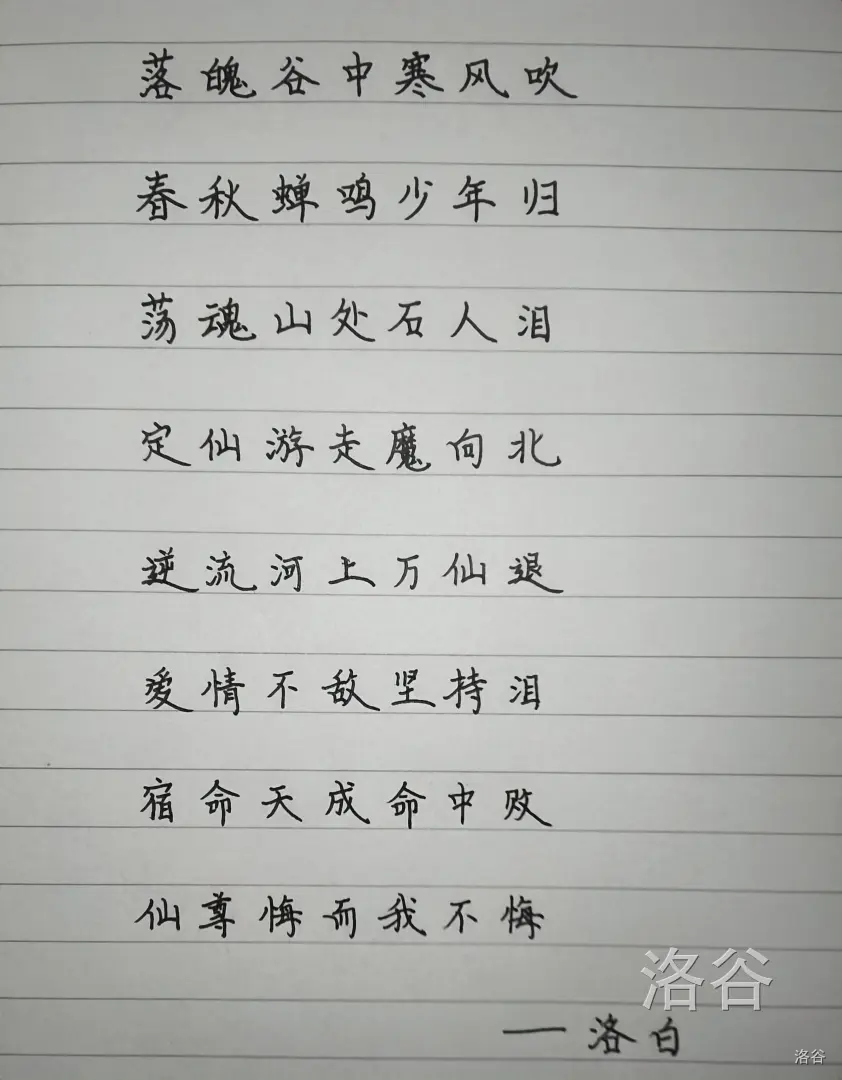 落魄谷中寒风吹
春秋蝉鸣少年归
荡魂山处石人泪
定仙游走魔向北
逆流河上万仙退
爱情不敌坚持泪
宿命天成命中败
仙尊悔而我不悔
洛谷
——洛白
洛谷